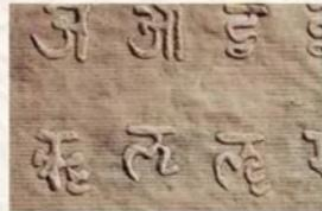 अ आ इ
ॠ ऌ ॡ